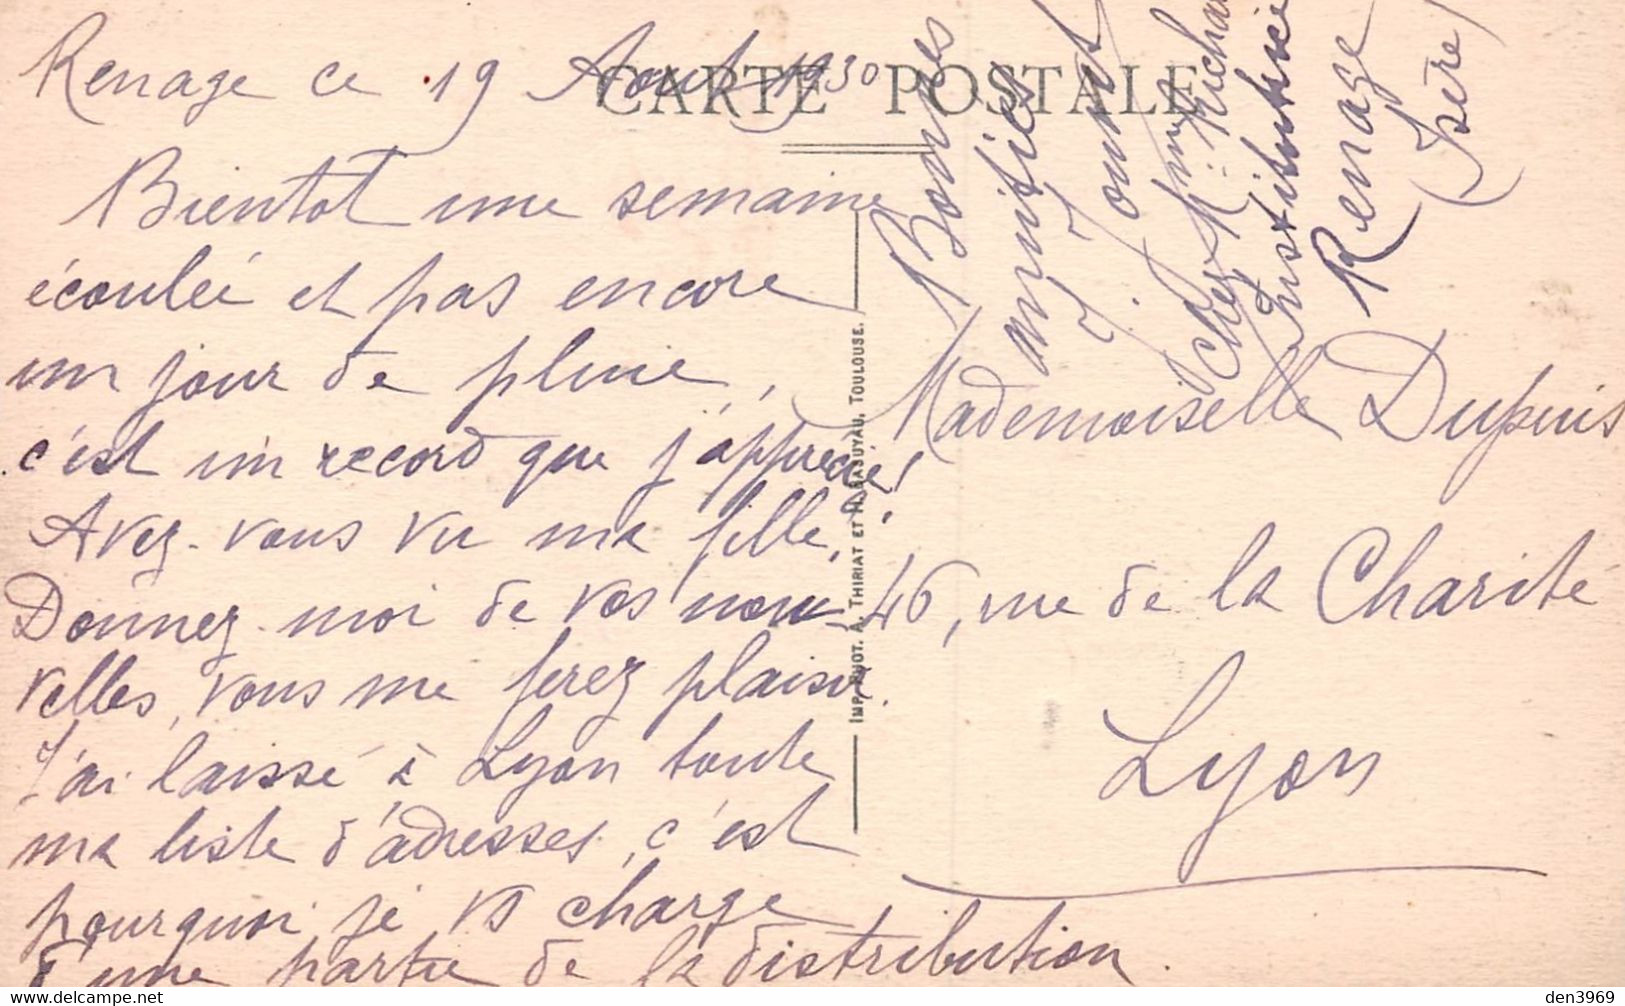 Renage ce 19 Aout 1930
CARTE POSTALE
Bientot une semaine
écoulée et pas encore
un jour de pluie,
c'est un record que j'apprécie!
Avez-vous vu ma fille,
Donnez-moi de vos nou-
velles, vous me ferez plaisir.
J'ai laissé à Lyon toute
ma liste d'adresses, c'est
pourquoi je vs charge
d'une partie de la distribution.
Bonnes
amitiés
chez Mme Richa
Institutrice
Renage
(Isère)
IMP. PHOT. A. THIRIAT ET H. BASUYAU, TOULOUSE.
Mademoiselle Dupuis
46, rue de la Charité
Lyon
den3969